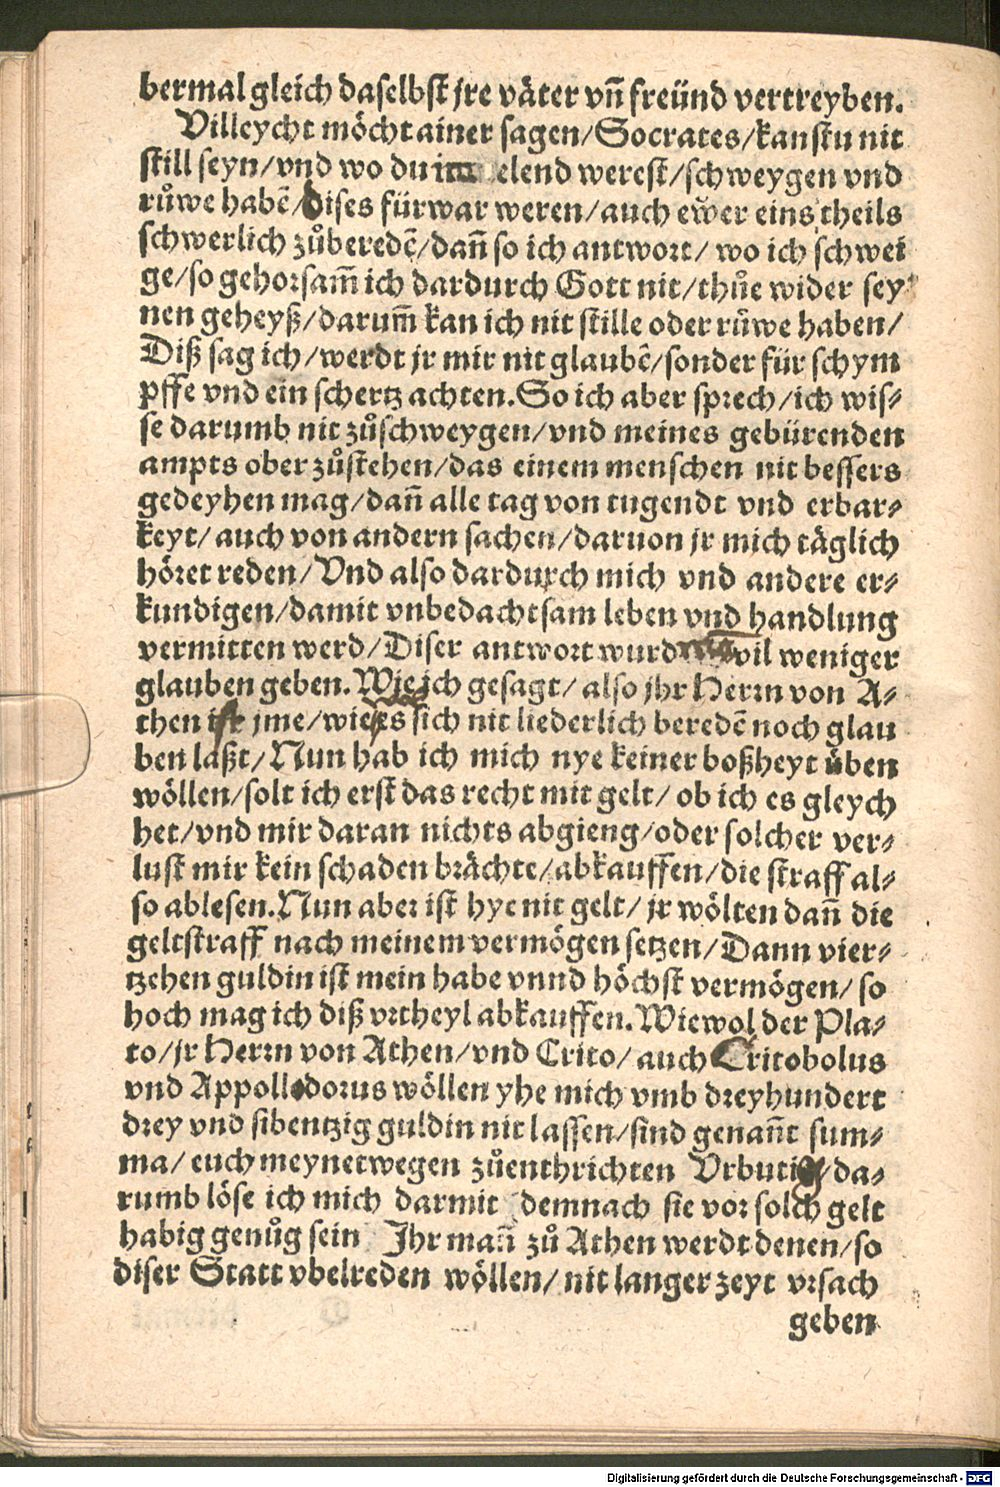 bermal gleich daselbst jre väter vñ freünd vertreyben.
Villeycht möcht ainer sagen/Socrates/kanstu nit
still seyn/vnd wo du im elend werest/schweygen vnd
růwe habẽ/dises fürwar weren/auch ewer eins theils
schwerlich zůberedẽ/dañ so ich antwort/ wo ich schwei
ge/so gehorsam̃ ich dardurch Gott nit/thůe wider sey
nen geheyß/darum̃ kan ich nit stille oder růwe haben/
Diß sag ich/werdt jr mir nit glaubẽ/sonder für schym
pffe vnd ein schertz achten.So ich aber sprech/ich wis-
se darumb nit zůschweygen/vnd meines gebürenden
ampts ober zůstehen/das einem menschen nit bessers
gedeyhen mag/dañ alle tag von tugendt vnd erbar-
keyt/ auch von andern sachen/daruon jr mich täglich
höret reden/Vnd also dardurch mich vnd andere er-
kundigen/damit vnbedachtsam leben vnd handlung
vermitten werd/Diser antwort wurd vil weniger
glauben geben. Wie ich gesagt/ also jhr Herrn von A-
then ist jme/wie es sich nit liederlich beredẽ noch glau
ben laßt/Nun hab ich mich nye keiner boßheyt üben
wöllen/solt ich erst das recht mit gelt/ ob ich es gleych
het/vnd mir daran nichts abgieng/oder solcher ver-
lust mir kein schaden brächte/abkauffen/die straff al-
so ablesen.Nun aber ist hye nit gelt/ jr wölten dañ die
geltstraff nach meinem vermögen setzen/Dann vier-
tzehen guldin ist mein habe vnnd höchst vermögen/ so
hoch mag ich diß vrtheyl abkauffen.Wiewol der Pla-
to/jr Herrn von Athen/vnd Crito/ auch Critobolus
vnd Appollodorus wöllen yhe mich vmb dreyhundert
drey vnd sibentzig guldin nit lassen/sind genañt sum-
ma/ euch meynetwegen zůenthrichten Vrbutig/da-
rumb löse ich mich darmit demnach sie vor solch gelt
habig genůg sein Jhr mañ zů Athen werdt denen/so
diser Statt vbelreden wöllen/nit langer zeyt vrsach
geben
Digitalisierung gefördert durch die Deutsche Forschungsgemeinschaft - DFG